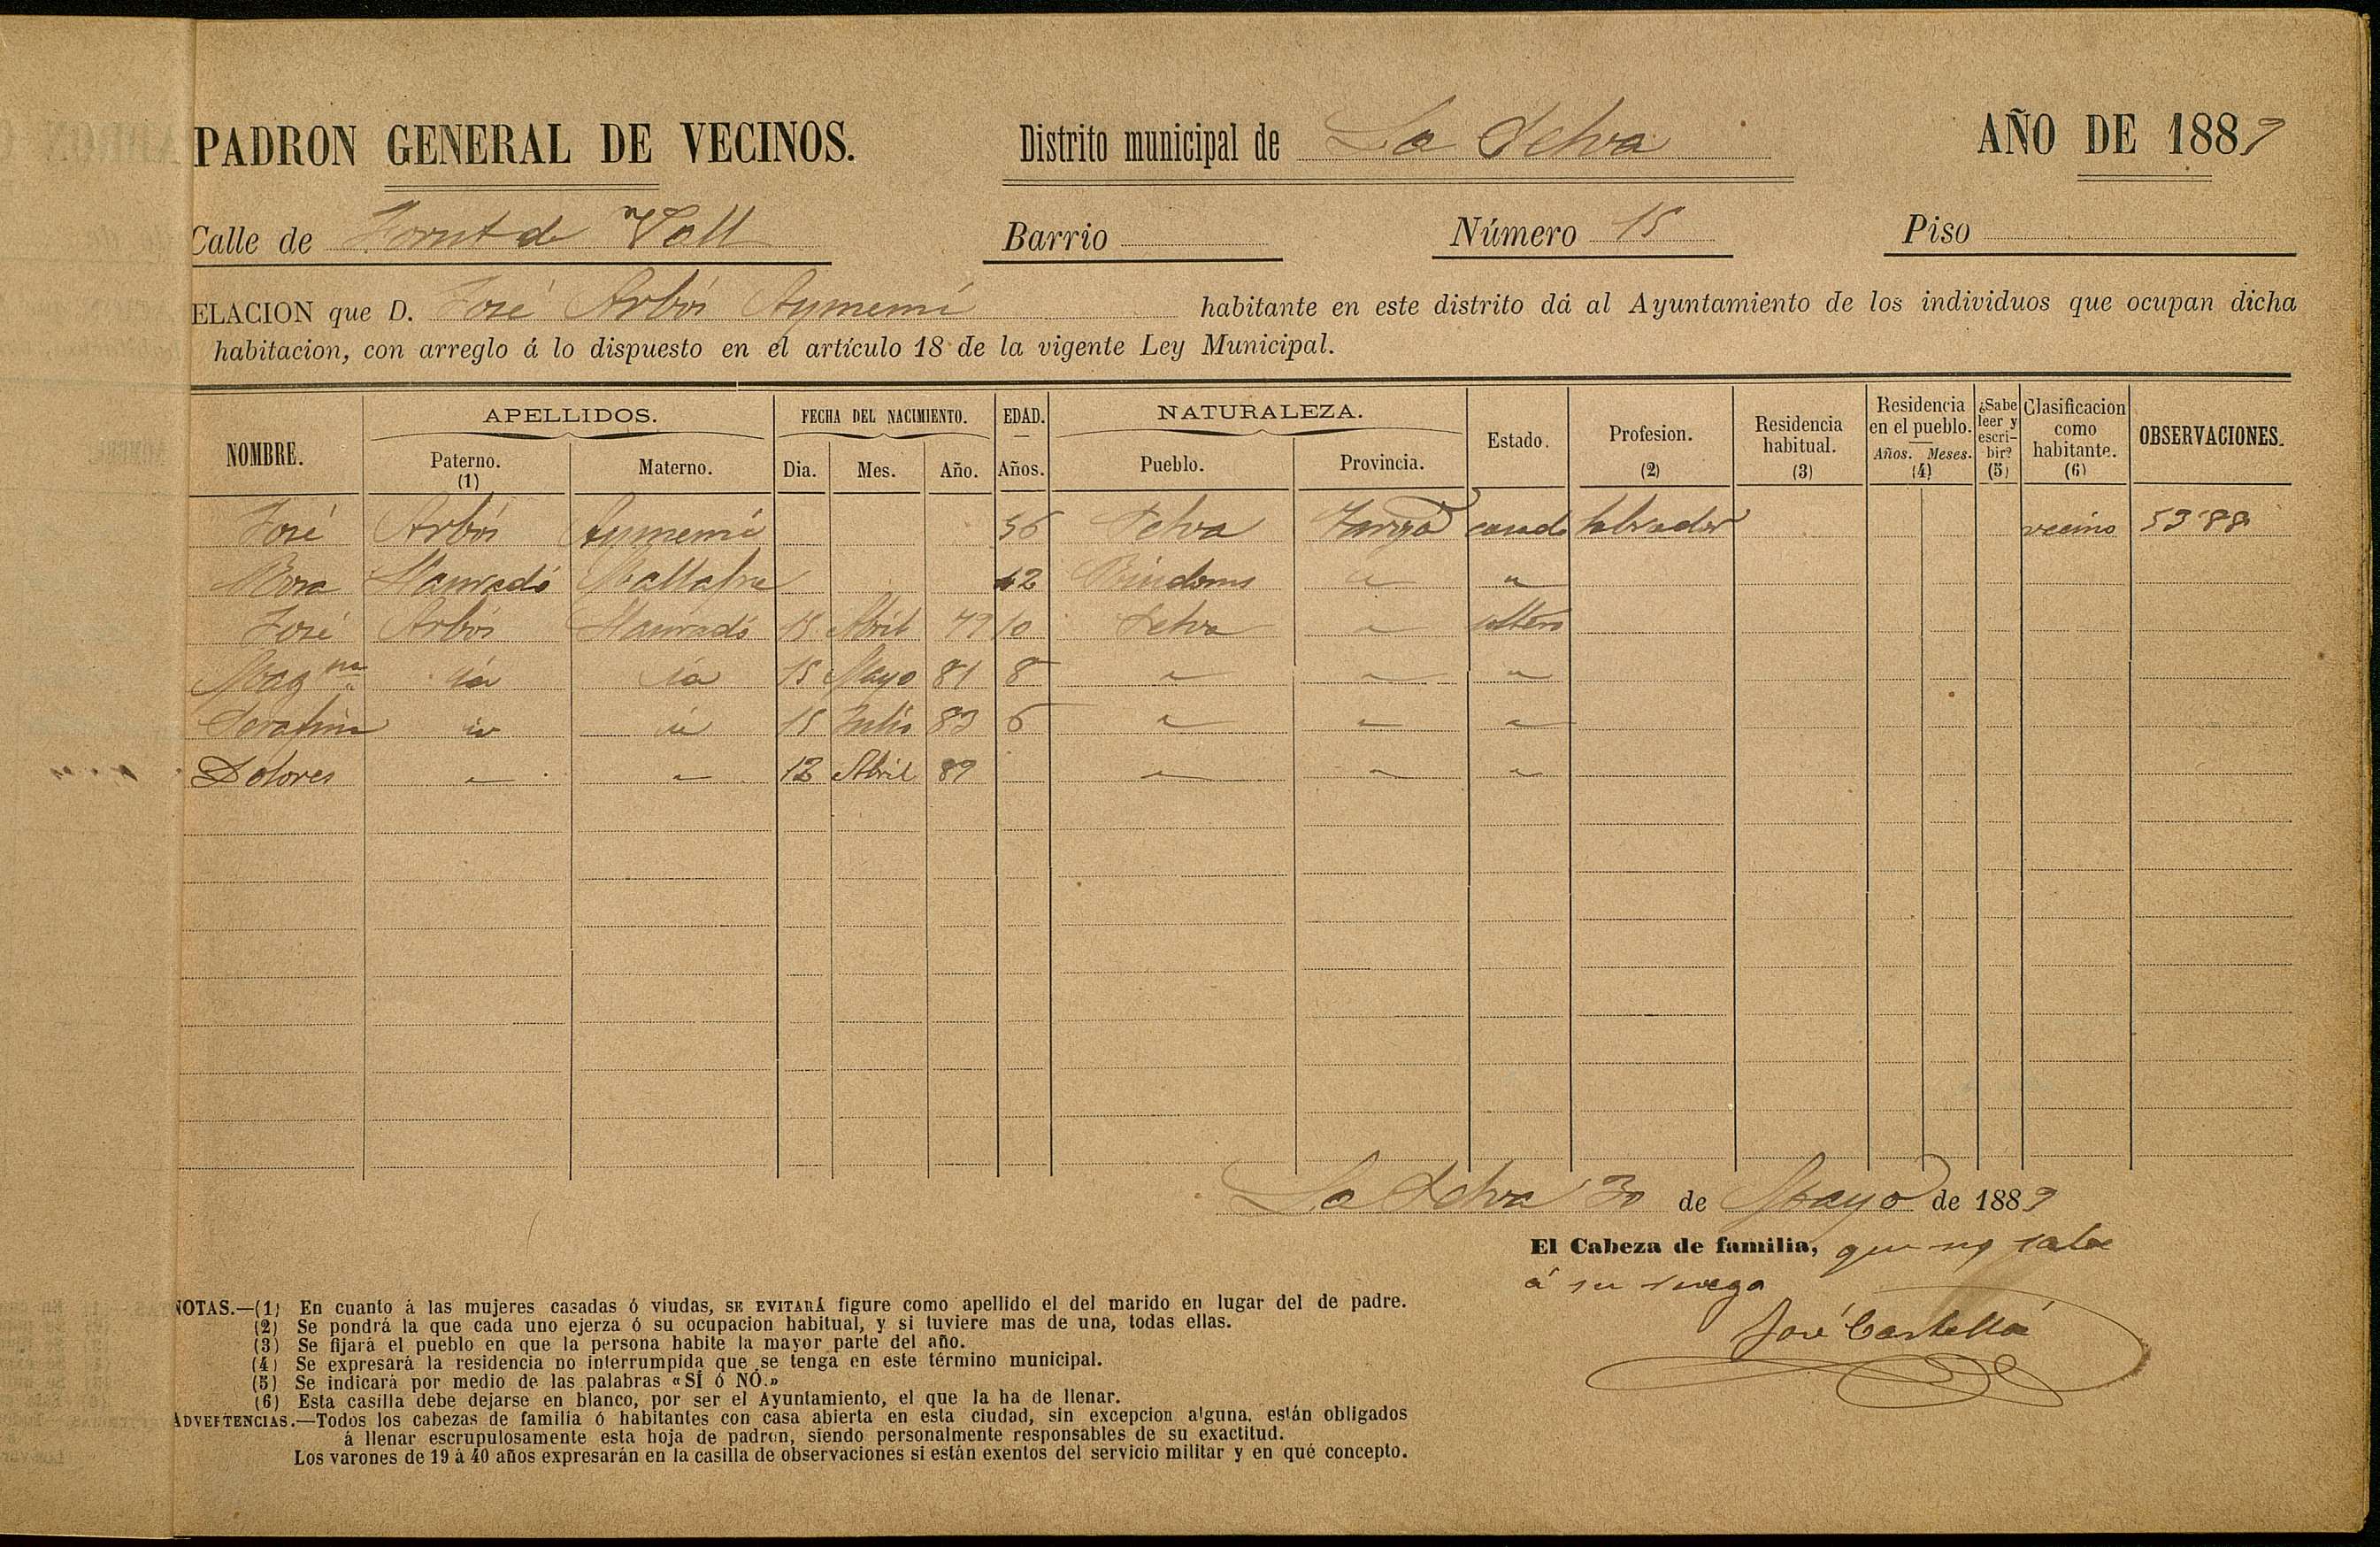 PADRON GENERAL DE VECINOS. Distrito municipal de La Selva AÑO DE 1889
Calle de Fornt de Vall Barrio Número 15 Piso
ELACION que D. José Arbós Aymemí habitante en este distrito dá al Ayuntamiento de los individuos que ocupan dicha
habitacion, con arreglo á lo dispuesto en el artículo 18 de la vigente Ley Municipal.
NOMBRE. APELLIDOS. FECHA DEL NACIMIENTO. EDAD. NATURALEZA. Estado. Profesion. (2) Residencia habitual. (3) Residencia en el pueblo. Años. Meses. (4) ¿Sabe leer y escribir? (5) Clasificacion como habitante. (6) OBSERVACIONES.
Paterno. (1) Materno. Dia. Mes. Año. Años. Pueblo. Provincia.
José Arbós Aymemí 36 Selva Tarrgª casado labrador vecino 53'88
Rosa Maltafré 42 Riudoms " "
José Arbós 15 Abril 79 10 Selva " soltero
Magⁿᵃ id id 15 Mayo 81 8 " " "
Serafina id id 15 Julio 83 6 " " "
Dolores " " 12 Abril 89 " " "
La Selva 30 de Mayo de 1889
El Cabeza de familia, que no sabe
á su ruego
José Castelló
NOTAS.—(1) En cuanto á las mujeres casadas ó viudas, SE EVITARÁ figure como apellido el del marido en lugar del de padre.
(2) Se pondrá la que cada uno ejerza ó su ocupacion habitual, y si tuviere mas de una, todas ellas.
(3) Se fijará el pueblo en que la persona habite la mayor parte del año.
(4) Se expresará la residencia no interrumpida que se tenga en este término municipal.
(5) Se indicará por medio de las palabras «SÍ ó NÓ.»
(6) Esta casilla debe dejarse en blanco, por ser el Ayuntamiento, el que la ha de llenar.
ADVERTENCIAS.—Todos los cabezas de familia ó habitantes con casa abierta en esta ciudad, sin excepcion alguna, están obligados
á llenar escrupulosamente esta hoja de padron, siendo personalmente responsables de su exactitud.
Los varones de 19 á 40 años expresarán en la casilla de observaciones si están exentos del servicio militar y en qué concepto.